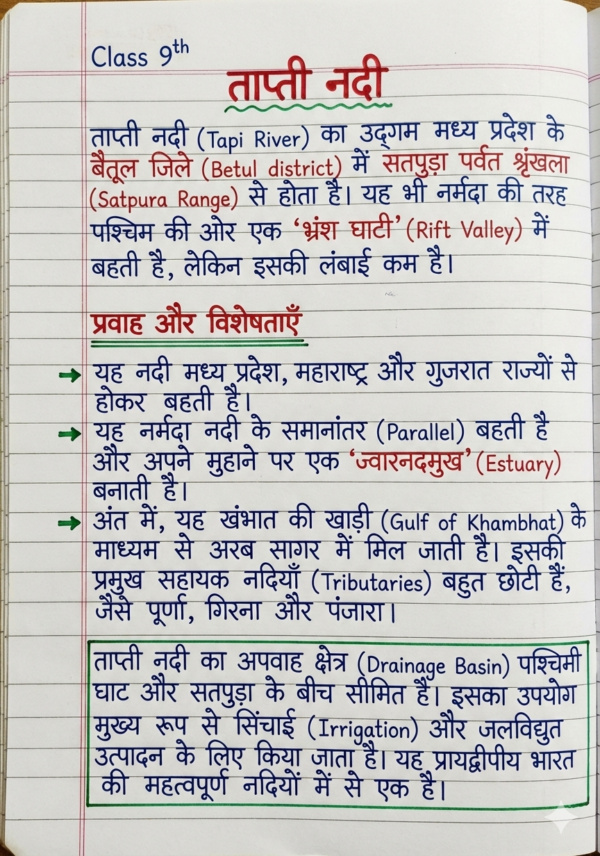 Class 9th
ताप्ती नदी
ताप्ती नदी (Tapi River) का उद्गम मध्य प्रदेश के
बैतूल जिले (Betul district) में सतपुड़ा पर्वत श्रृंखला
(Satpura Range) से होता है। यह भी नर्मदा की तरह
पश्चिम की ओर एक ‘भ्रंश घाटी’ (Rift Valley) में
बहती है, लेकिन इसकी लंबाई कम है।
प्रवाह और विशेषताएँ
→ यह नदी मध्य प्रदेश, महाराष्ट्र और गुजरात राज्यों से
होकर बहती है।
→ यह नर्मदा नदी के समानांतर (Parallel) बहती है
और अपने मुहाने पर एक ‘ज्वारनदमुख’ (Estuary)
बनाती है।
→ अंत में, यह खंभात की खाड़ी (Gulf of Khambhat) के
माध्यम से अरब सागर में मिल जाती है। इसकी
प्रमुख सहायक नदियाँ (Tributaries) बहुत छोटी हैं,
जैसे पूर्णा, गिरना और पंजारा।
ताप्ती नदी का अपवाह क्षेत्र (Drainage Basin) पश्चिमी
घाट और सतपुड़ा के बीच सीमित है। इसका उपयोग
मुख्य रूप से सिंचाई (Irrigation) और जलविद्युत
उत्पादन के लिए किया जाता है। यह प्रायद्वीपीय भारत
की महत्वपूर्ण नदियों में से एक है।